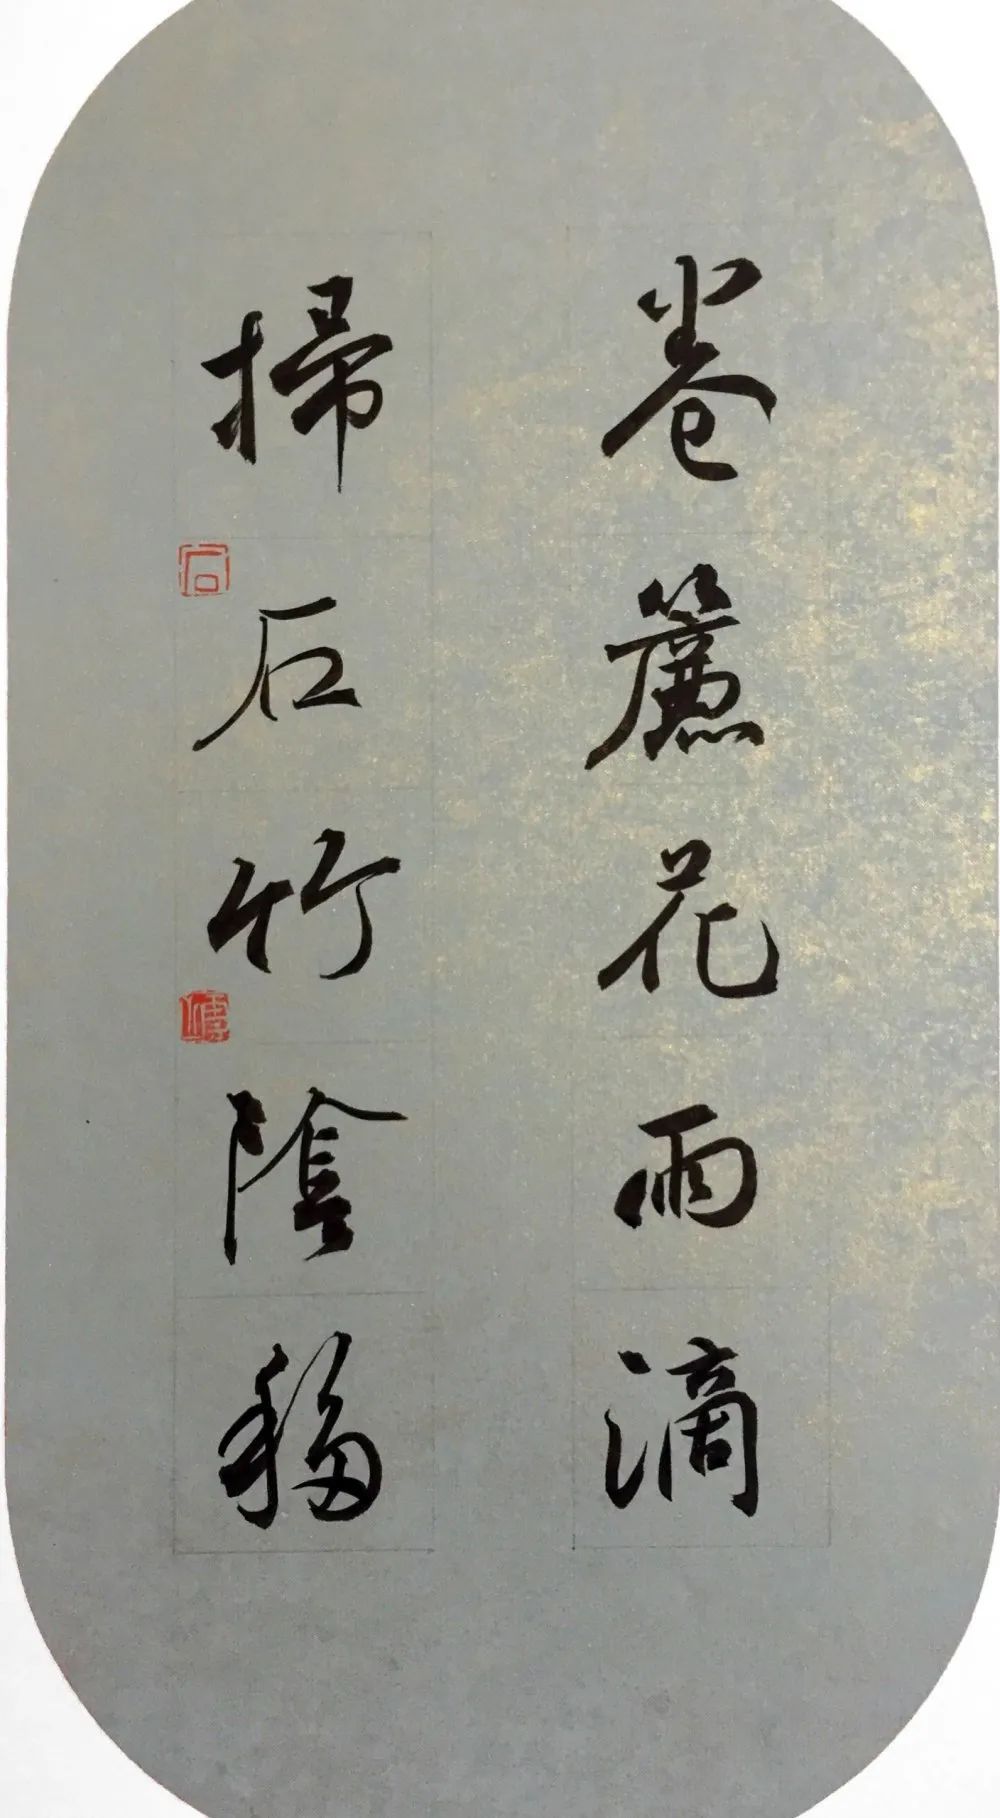 卷簾花雨滴
掃石竹陰移